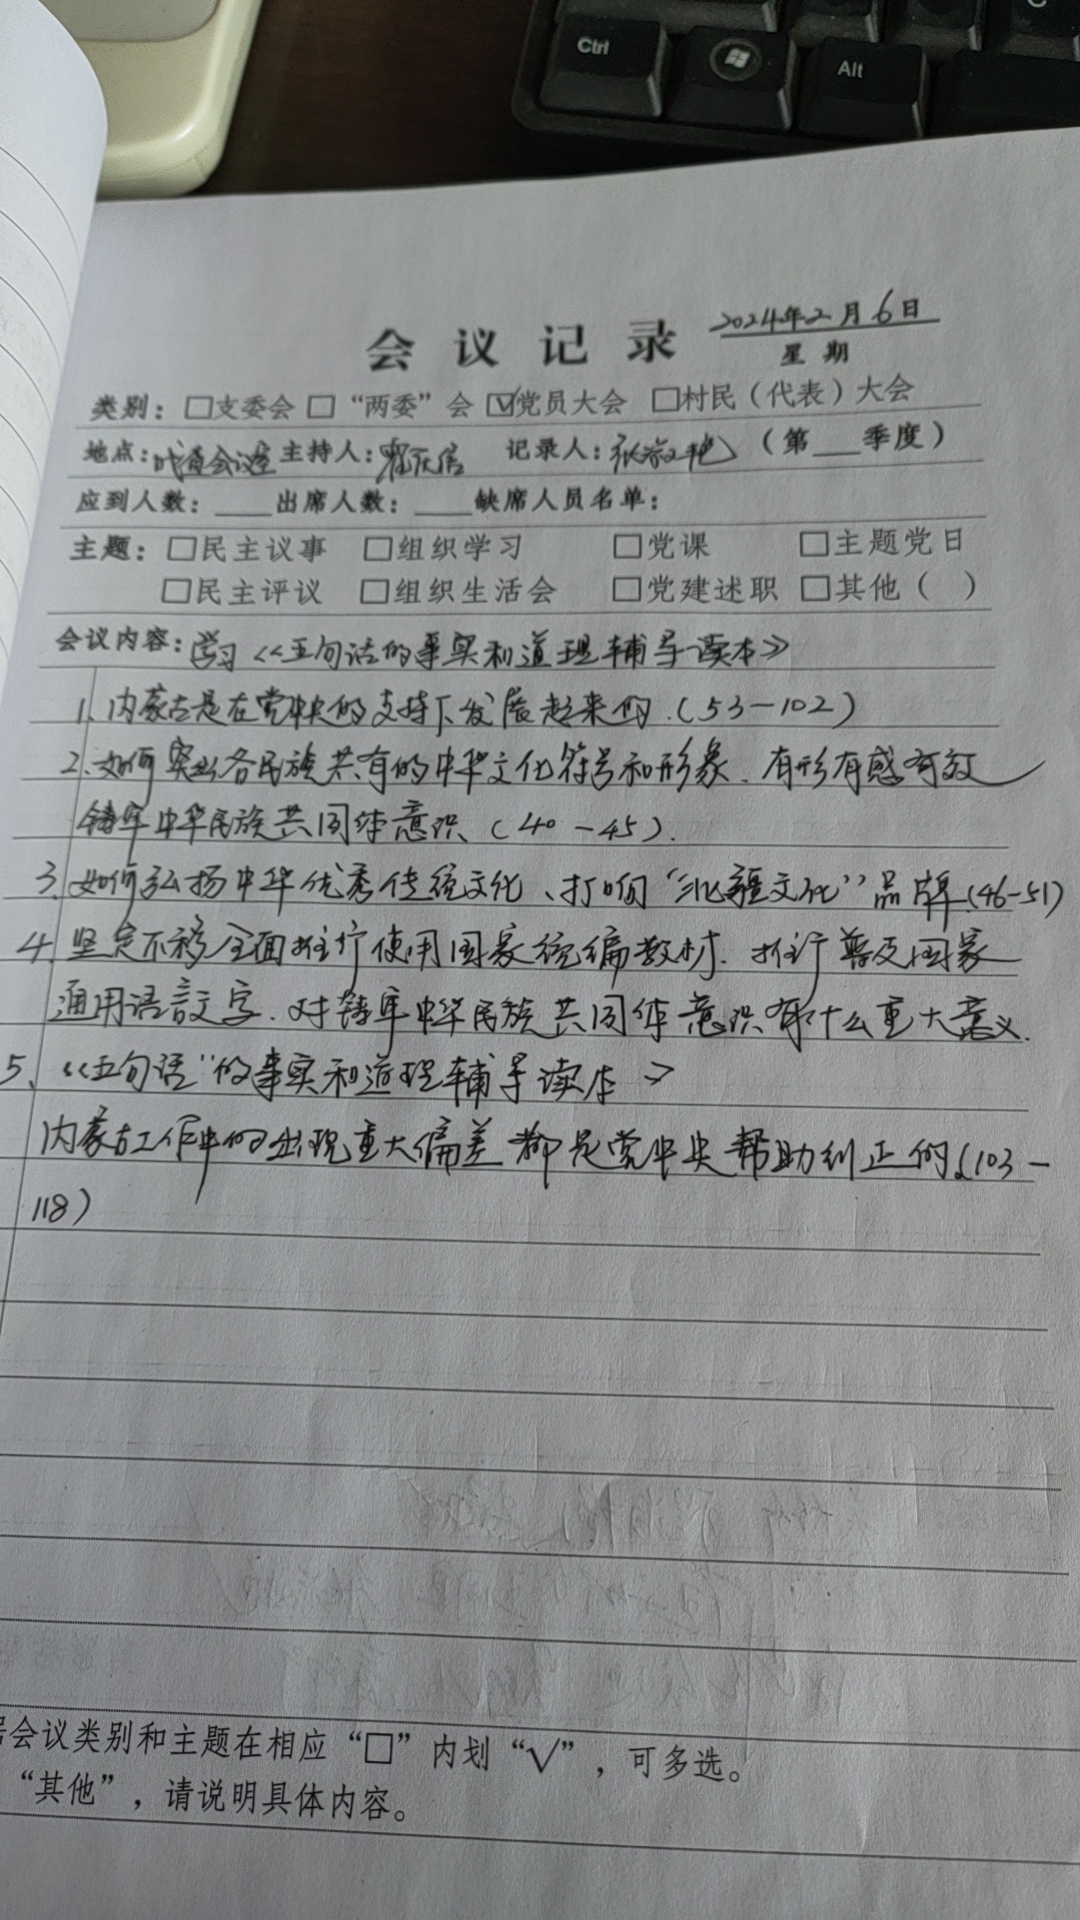 Ctrl
Alt
2024年2月6日
会议记录
星期
类别：□支委会 □“两委”会 ☑党员大会 □村民（代表）大会
地点：会议室 主持人： 记录人： （第__季度）
应到人数：____出席人数：____缺席人员名单：
主题：□民主议事 □组织学习 □党课 □主题党日
□民主评议 □组织生活会 □党建述职 □其他（ ）
会议内容：学习《五句话的事实和道理辅导读本》
1、内蒙古是在党中央的支持下发展起来的.（53－102）
2、如何突出各民族共有的中华文化符号和形象、有形有感有效
铸牢中华民族共同体意识（40－45）.
3、如何弘扬中华优秀传统文化、打响“北疆文化”品牌（46-51）
4、坚定不移全面推行使用国家统编教材、推行普及国家
通用语言文字、对铸牢中华民族共同体意识有什么重大意义.
5、《五句话”的事实和道理辅导读本》
内蒙古工作中的出现重大偏差都是党中央帮助纠正的（103－
118）
会议类别和主题在相应“□”内划“√”，可多选。
“其他”，请说明具体内容。